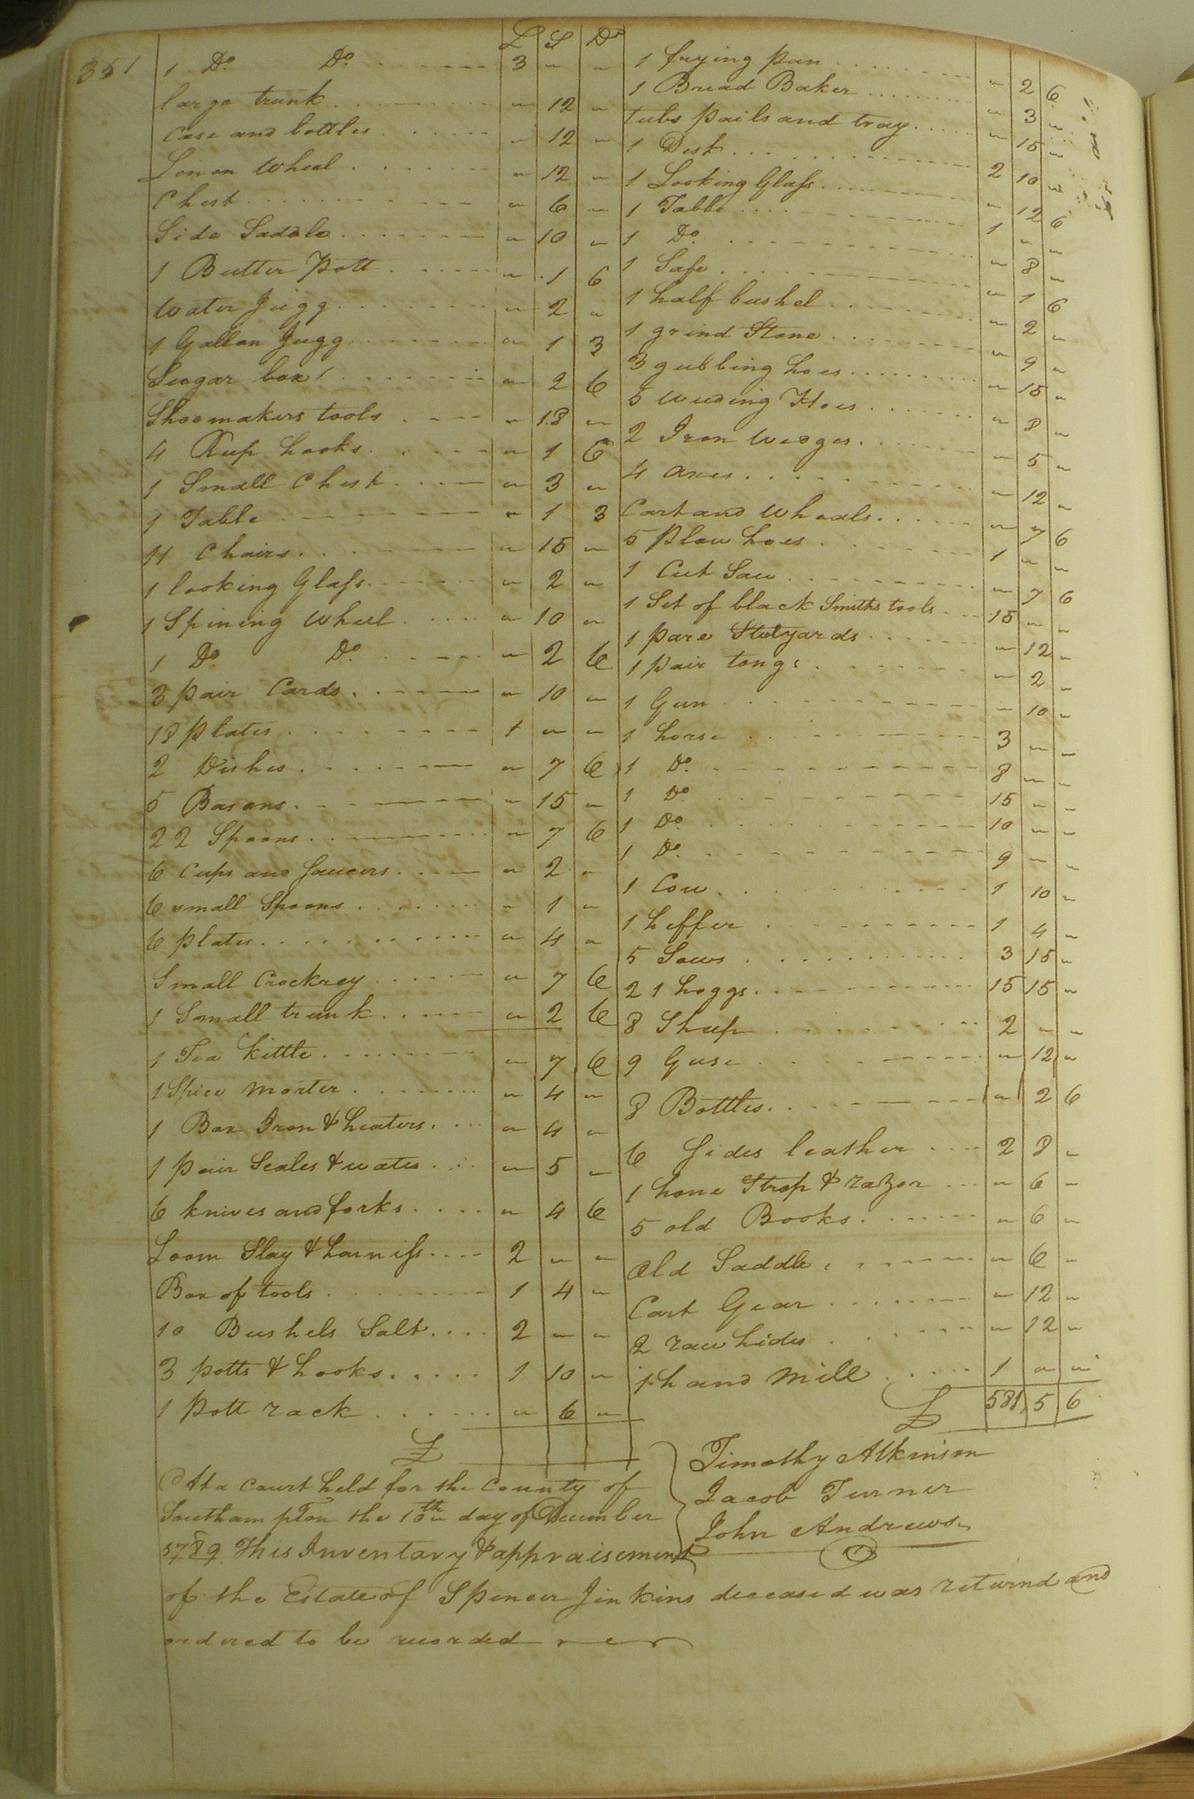 351
£ S D
1 Do Do 3 " "
large trunk " 12 "
Case and bottles " 12 "
Linnon Wheel " 12 "
Chest " 6 "
Side Saddle " 10 "
1 Butter Pott " 1 6
Water Jugg " 2 "
1 Gallon Jugg " 1 3
Seugar box " 2 6
Shoomakers tools " 18 "
4 Reap hooks " 1 6
1 Small Chest " 3 "
1 Table " 1 3
11 Chairs " 15 "
1 looking Glass " 2 "
1 Spining Wheel " 10 "
1 Do Do " 2 6
3 pair Cards " 10 "
18 plates 1 " "
2 Dishes " 7 6
5 Basons " 15 "
22 Spoons " 7 6
6 Cups and Saucers " 2 "
6 small Spoons " 1 "
6 plates " 4 "
Small Crockrey " 7 6
1 Small trunk " 2 6
1 Tea kittle " 7 6
1 Spice morter " 4 "
1 Box Iron & heaters " 4 "
1 pair Scales & wates " 5 "
6 knives and forks " 4 6
Loom Slay & harniss 2 " "
Box of tools 1 4 "
10 Bushels Salt 2 " "
3 potts & hooks 1 10 "
1 Pott rack " 6 "
£
1 frying pan " 2 6
1 Bread Baker " 3 "
tubs pails and tray " 15 "
1 Desk 2 10 "
1 Looking Glass " 12 6
1 Table 1 " "
1 Do " 8 "
1 Safe " 1 6
1 half bushel " 2 "
1 grind Stone " 9 "
3 gubbing hoes " 15 "
5 weeding Hoes " 8 "
2 Iron wedges " 5 "
4 axes " 12 "
Cart and Wheals " 7 6
5 Plow hoes 1 " "
1 Cut Saw " 7 6
1 Set of black Smiths tools 15 " "
1 pare Stelyards " 12 "
1 pair tongs " 2 "
1 Gun " 10 "
1 horse 3 " "
1 Do 8 " "
1 Do 15 " "
1 Do 10 " "
1 Do 9 " "
1 Cow 1 10 "
1 heffer 1 4 "
5 Sows 3 15 "
21 hoggs 15 15 "
8 Sheep 2 " "
9 Guse " 12 "
8 Bottles " 2 6
6 Sides leather 2 8 "
1 hone Strop & razor " 6 "
5 old Books " 6 "
old Saddle " 6 "
Cart Gear " 12 "
2 raw hides " 12 "
1 hand mill 1 " "
£ 581, 5 6
Timothy Atkinson
Jacob Turner
John Andrews
At a Court held for the County of
Southampton the 10th day of December
1789. This Inventory & appraisement
of the Estate of Spencer Jinkins deceased was returnd and
ordered to be recorded